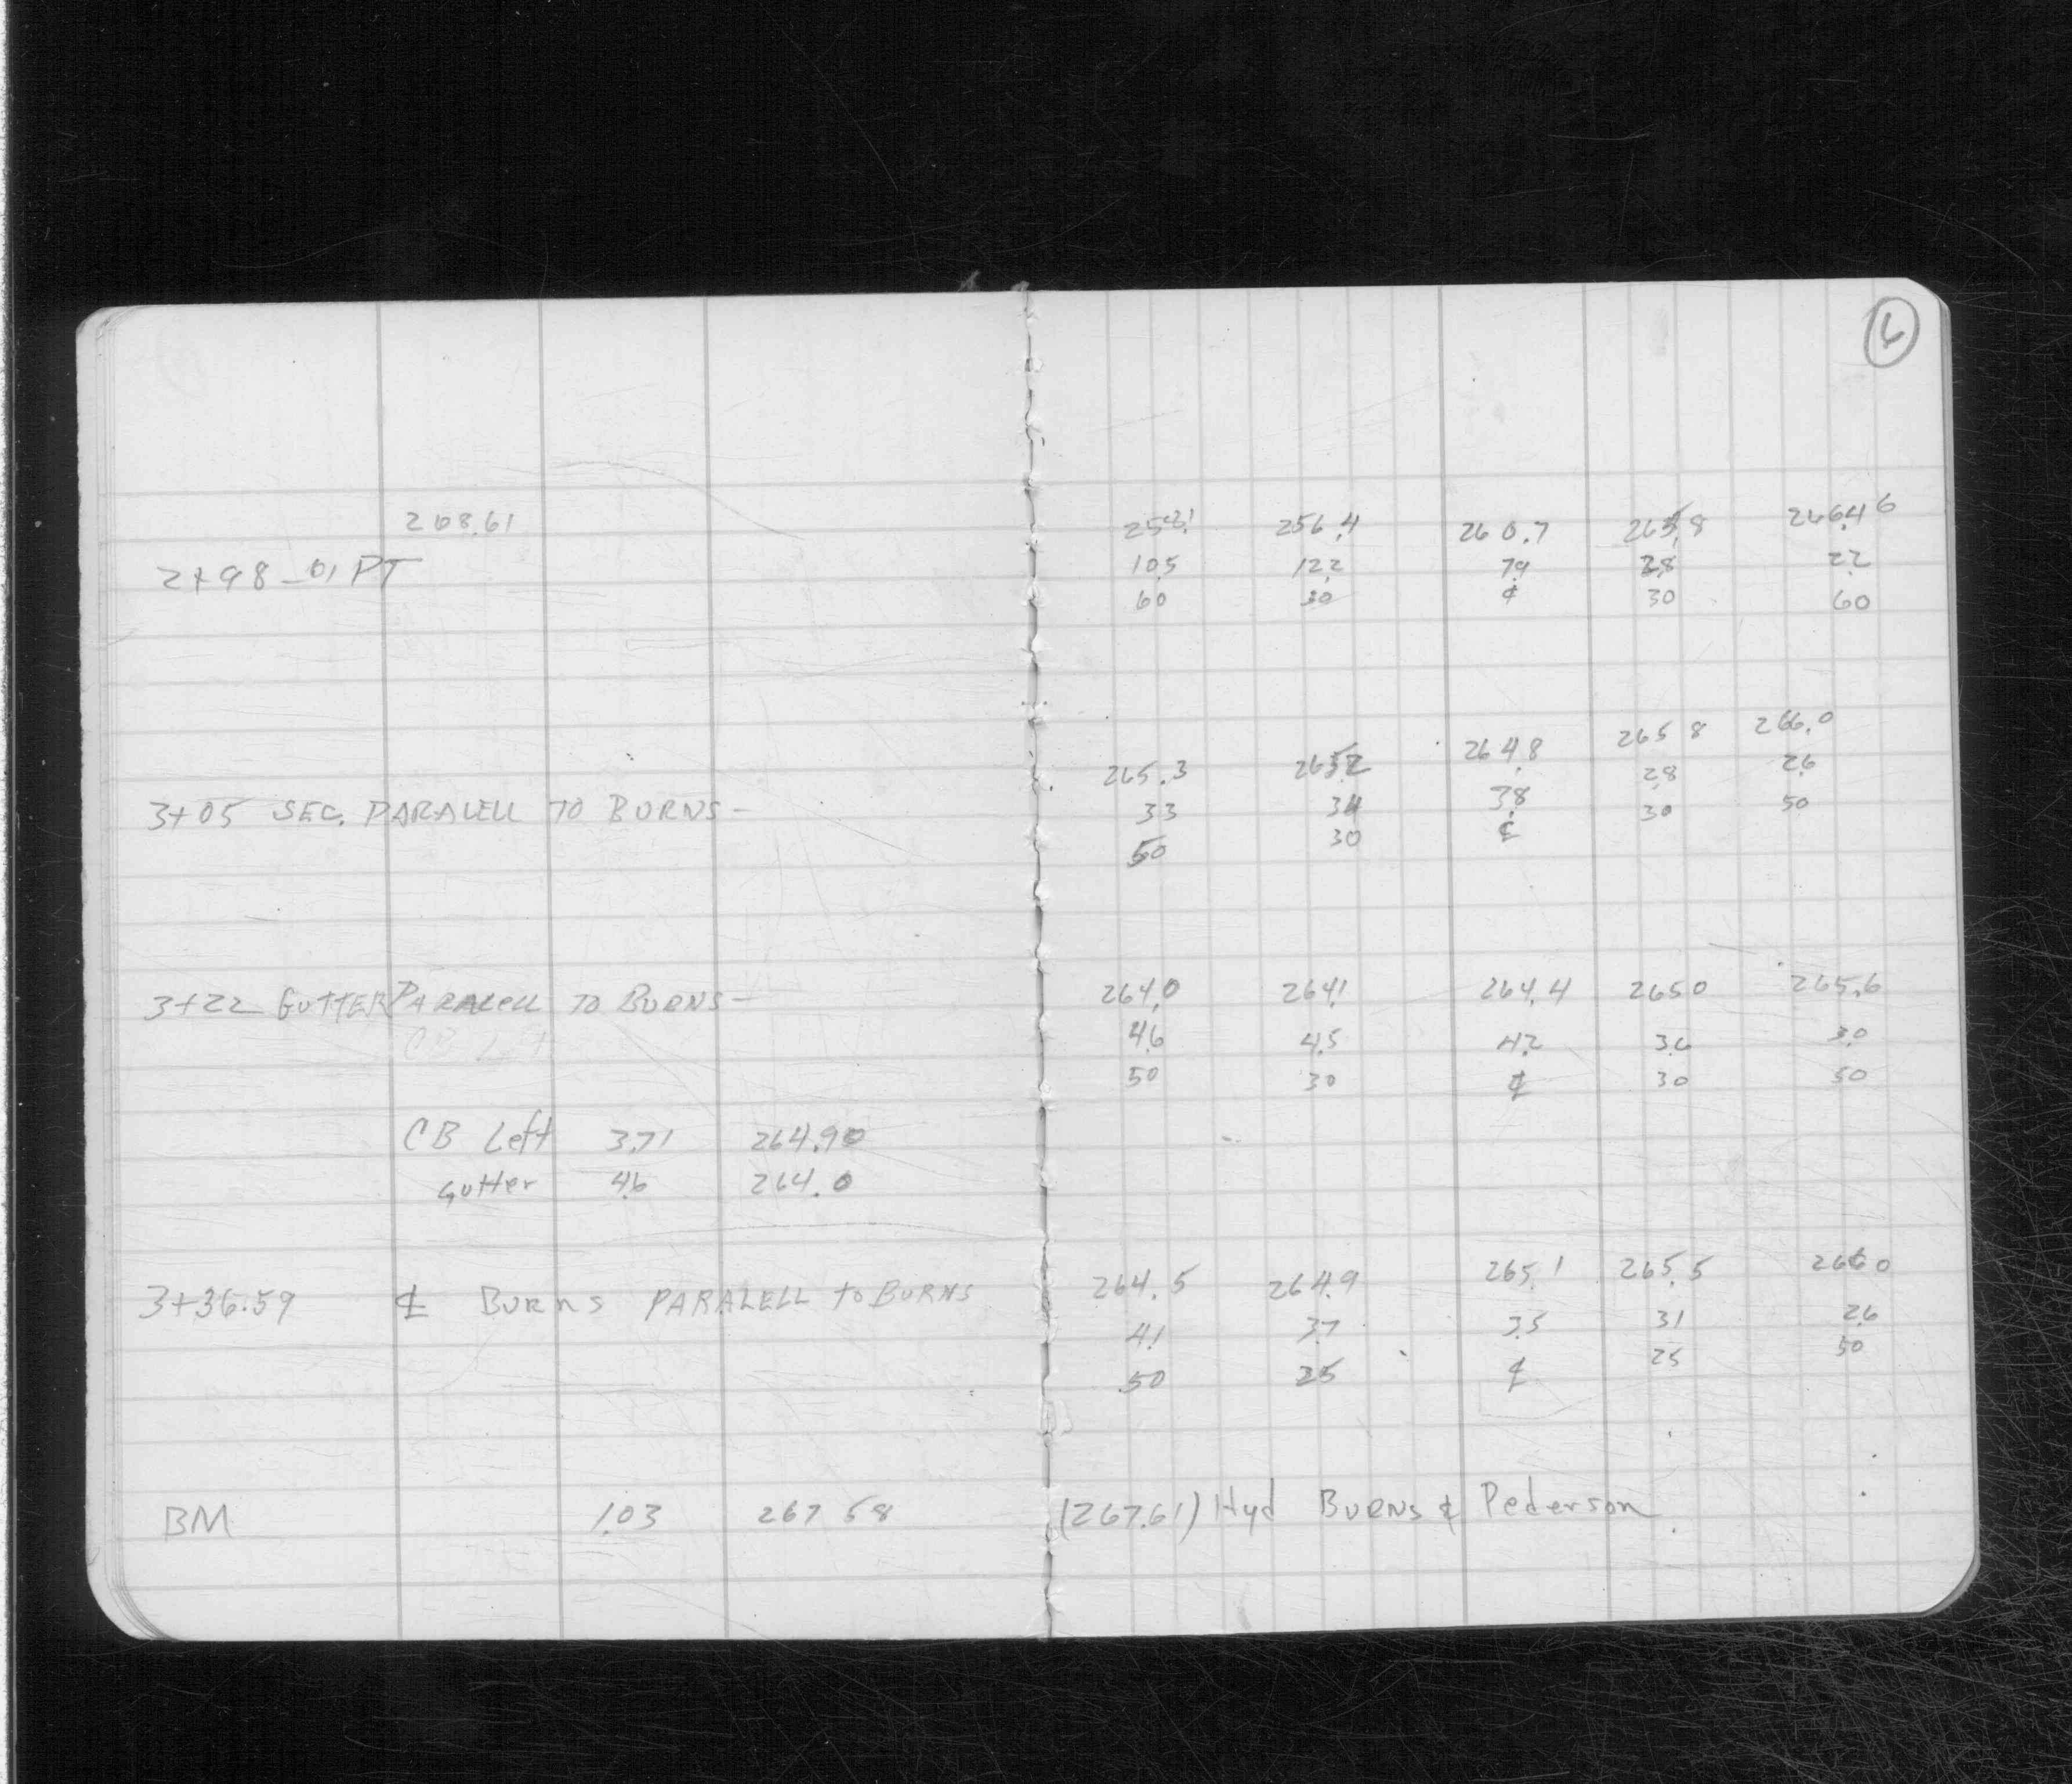 6
268.61
258.1 256.4 260.7 265.8 266.4 6
2+98.01 PT 10.5 12.2 7.9 2.8 2.2
60 30 ℄ 30 60
265.3 265.2 264.8 265.8 266.0
3+05 SEC. PARALELL TO BURNS- 3.3 3.4 3.8 2.8 2.6
50 30 ℄ 30 50
3+22 GUTTER PARALELL TO BURNS- 264.0 264.1 264.4 265.0 265.6
CB Left 4.6 4.5 4.2 3.6 3.0
50 30 ℄ 30 50
CB Left 3.71 264.90
Gutter 4.6 264.0
3+36.59 ℄ BURNS PARALELL to BURNS 264.5 264.9 265.1 265.5 266.0
4.1 3.7 3.5 3.1 2.6
50 25 ℄ 25 50
BM 1.03 267 58 (267.61) Hyd BURNS & Pederson